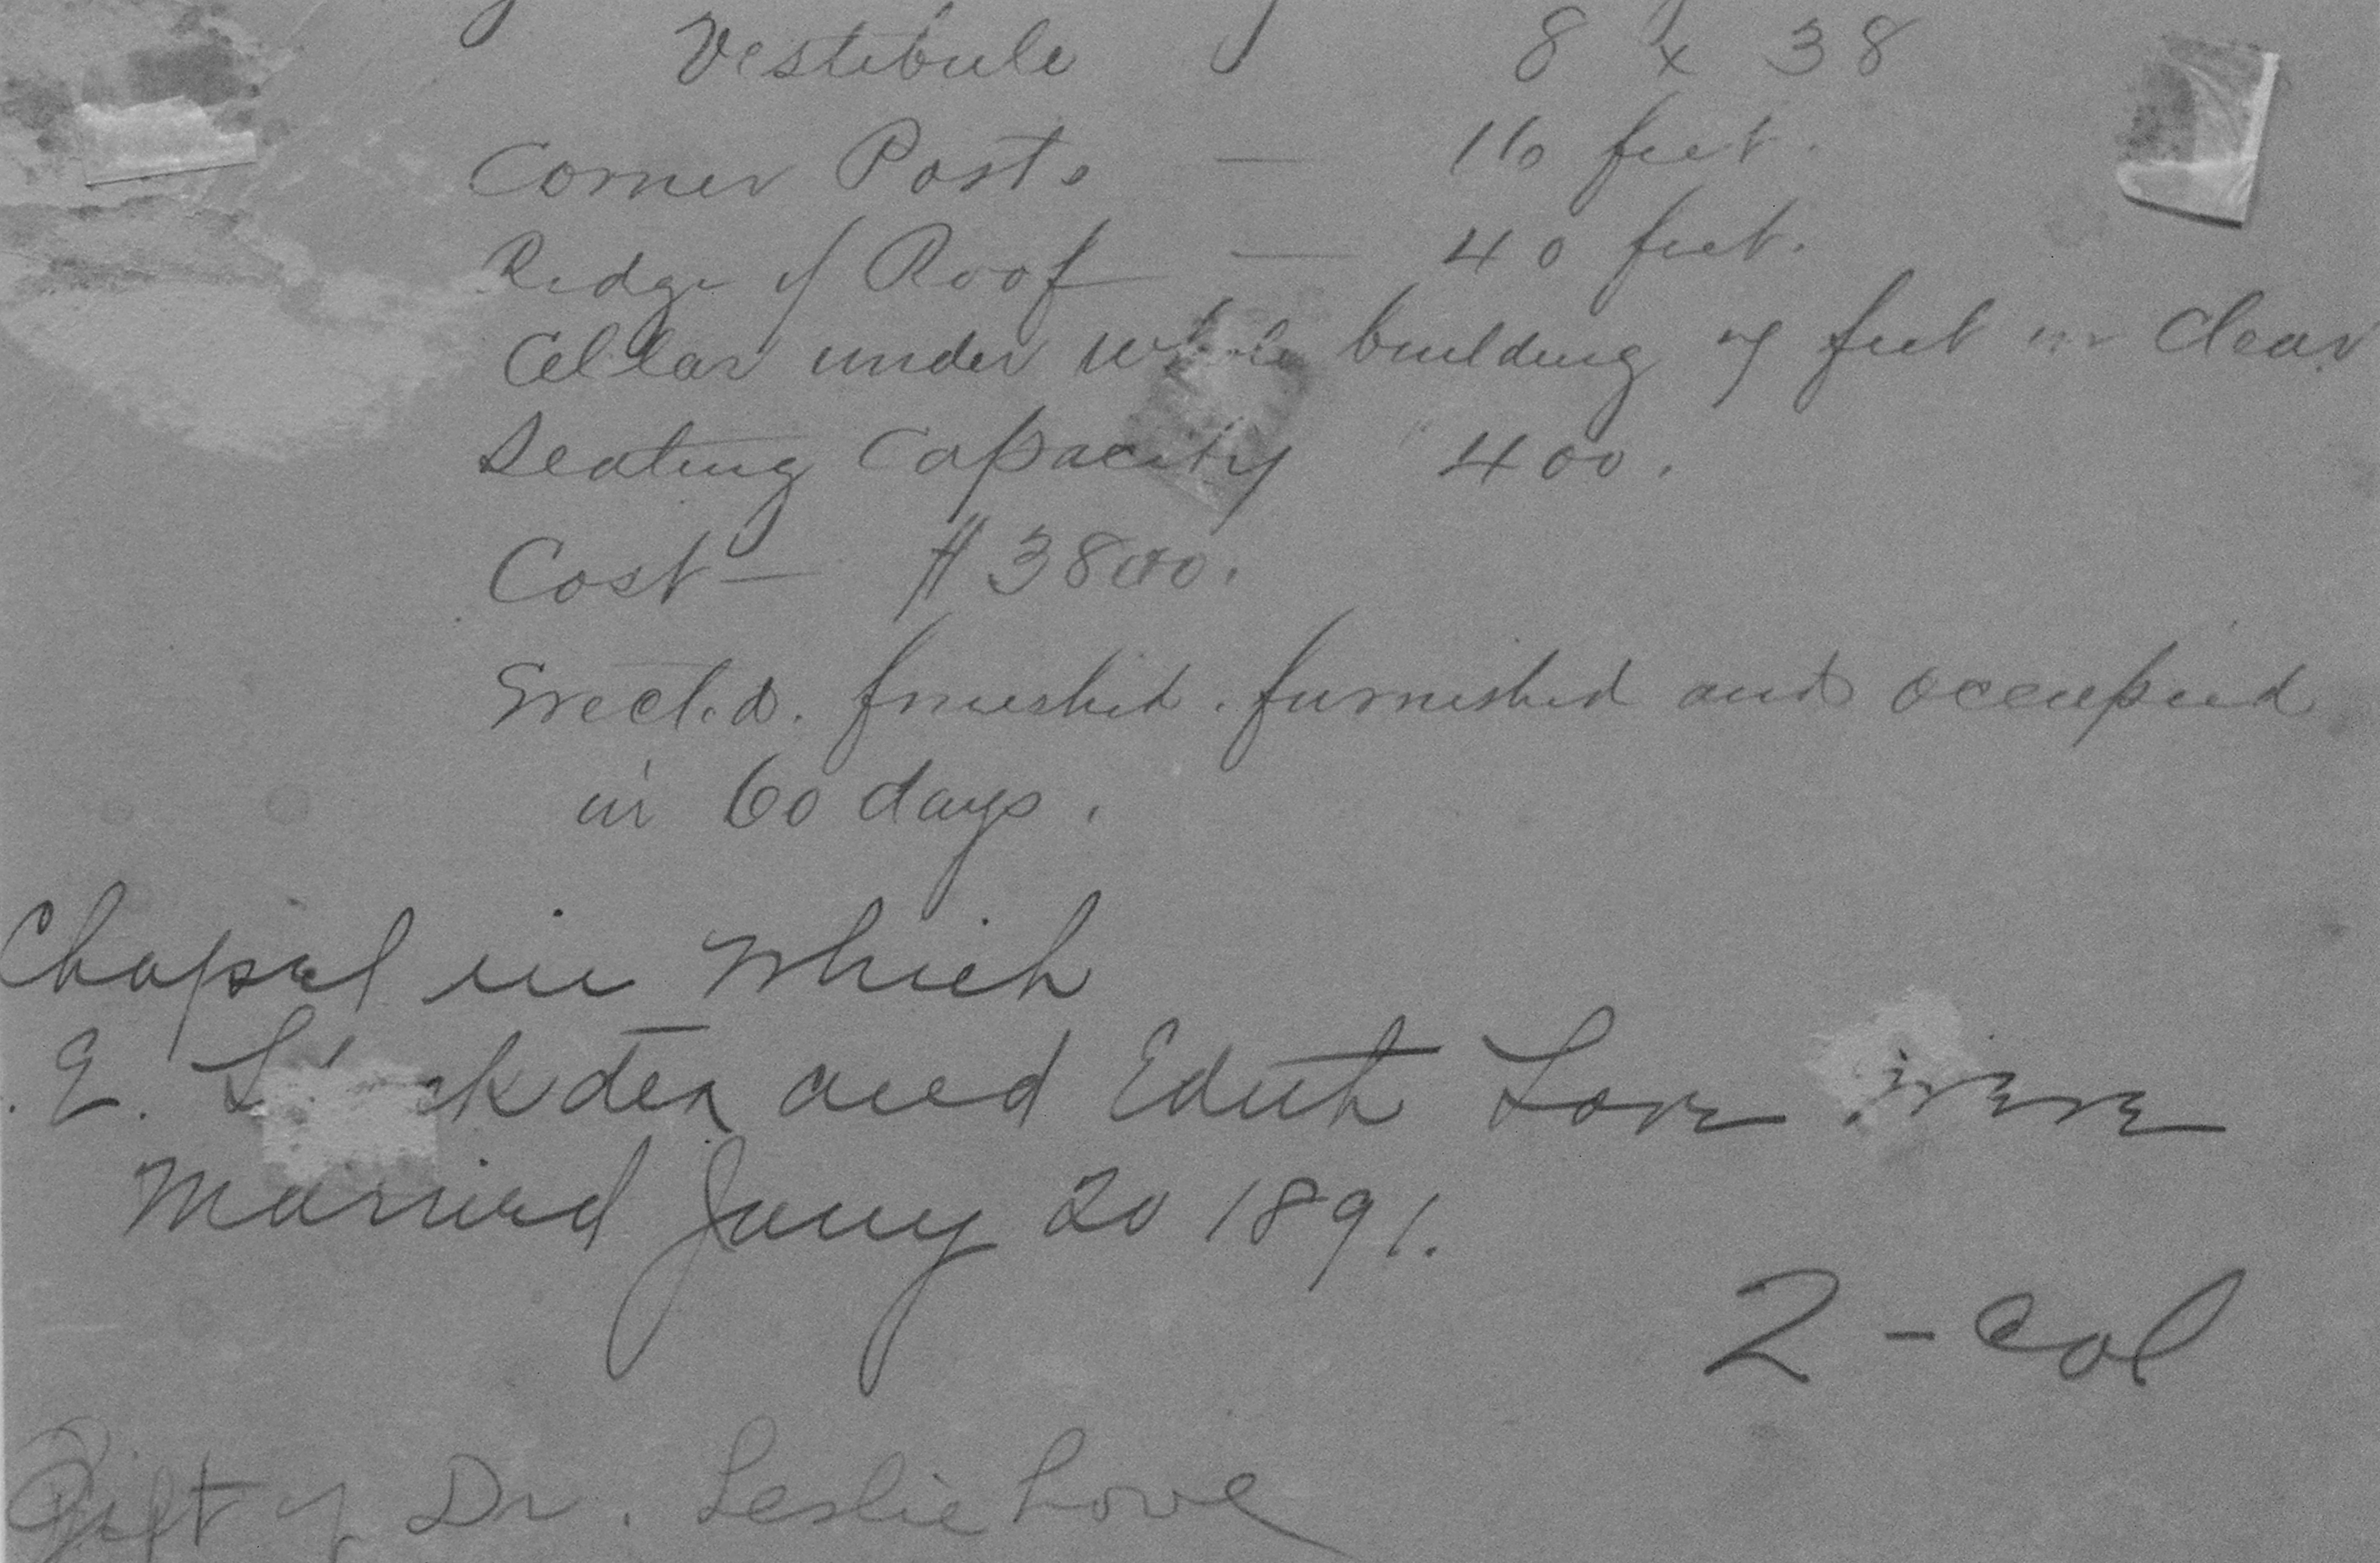 Vestibule 8 x 38
Corner Posts — 16 feet.
Ridge of Roof — 40 feet.
Cellar under whole building 7 feet in clear
Seating Capacity 400.
Cost — $3800.
Erected. finished. furnished and occupied
in 60 days.
Chapel in Which
E. and Edith Love were
Married Jany 20 1891.
2 - col
Gift of Dr. Leslie Love